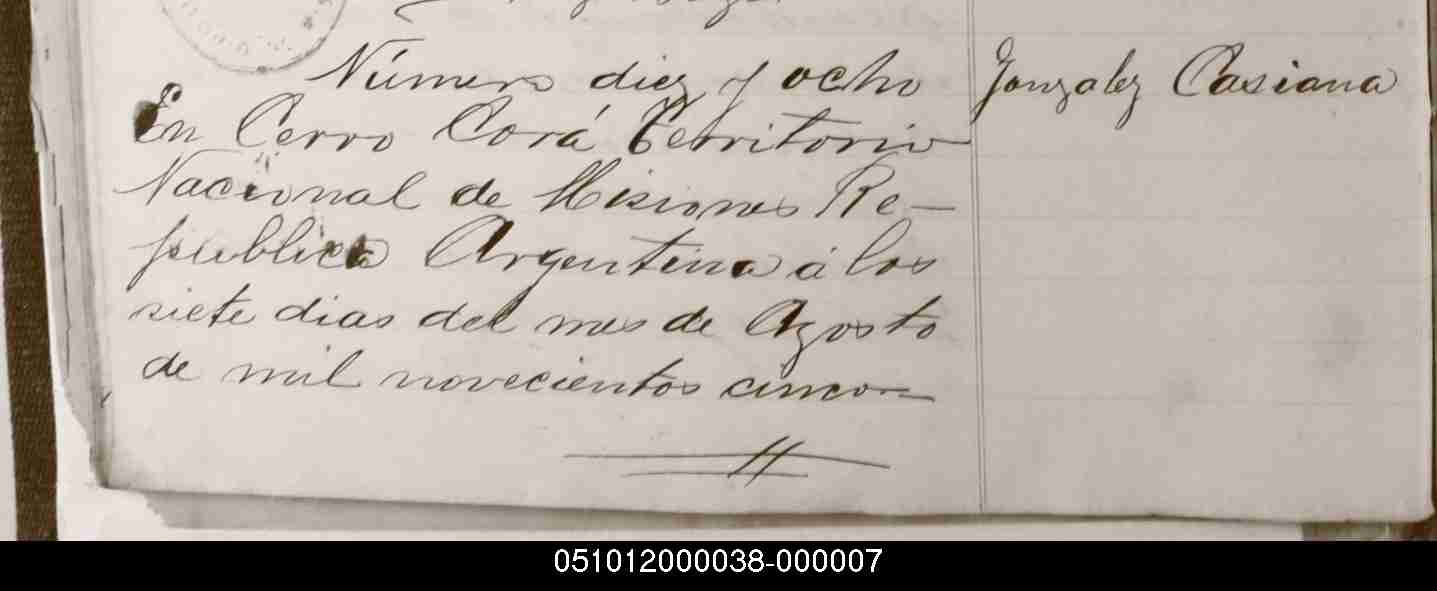 Número diez y ocho
Gonzalez Casiana
En Cerro Corá Territorio
Nacional de Misiones Re-
publica Argentina á los
siete dias del mes de Agosto
de mil novecientos cinco
051012000038-000007